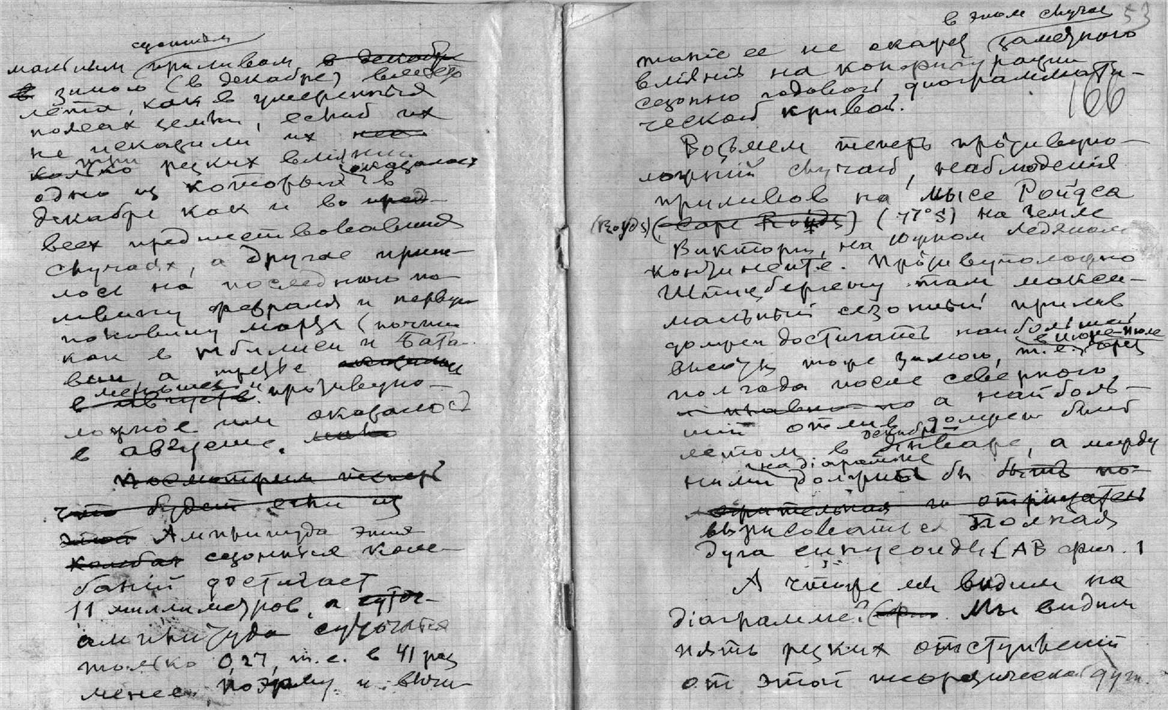 сезонным
мальным приливом в декабре
в зимою (в декабре) вместо
лета, как в умеренных
поясах земли, если б их
не исказили их
резких влиянии
одно из которых оказалось в
декабре как и во пред-
всех предшествовавших
случаях, а другое приш-
лось на последнюю по-
ловину февраля и первую
половину марта (почти
как в Тбилиси и Бата-
а третье
меньшее противупо-
ложное им оказалось
в августе.
Посмотрим теперь
что будет если из
этой Амплитуда этих
колебан сезонных коле-
баний достигает
11 миллиметров, а суточ-
амплитуда суточных
только 0,27, т. е. в 41 раз
менее, поэтому и вычи-
в этом случае 53
тание ее не окажет заметного
влияния на конфигурации
сезонно годовой диаграммати-
ческой кривой.
166
Возьмем теперь противупо-
ложный случай, наблюдения
приливов на мысе Ройдса
(Royds) (Cape Royds) (77°S) на Земле
Виктории, на южном ледяном
континенте. Противуположно
Шпицбергену там макси-
мальный сезонный прилив
должен достигать наибольшей
в июне-июле
высоты тоже зимою, т.е. через
полгода после северного
а наиболь-
ший отлив должен быть
декабре
летом в Январе, а между
на диаграмме
ними должна бы быть по-
ложительная и отрицатель
вырисоваться полная
дуга синусоиды (АВ фиг. 1
А что же мы видим на
диаграмме? Мы видим
пять резких отступлений
от этой теоретической дуги.